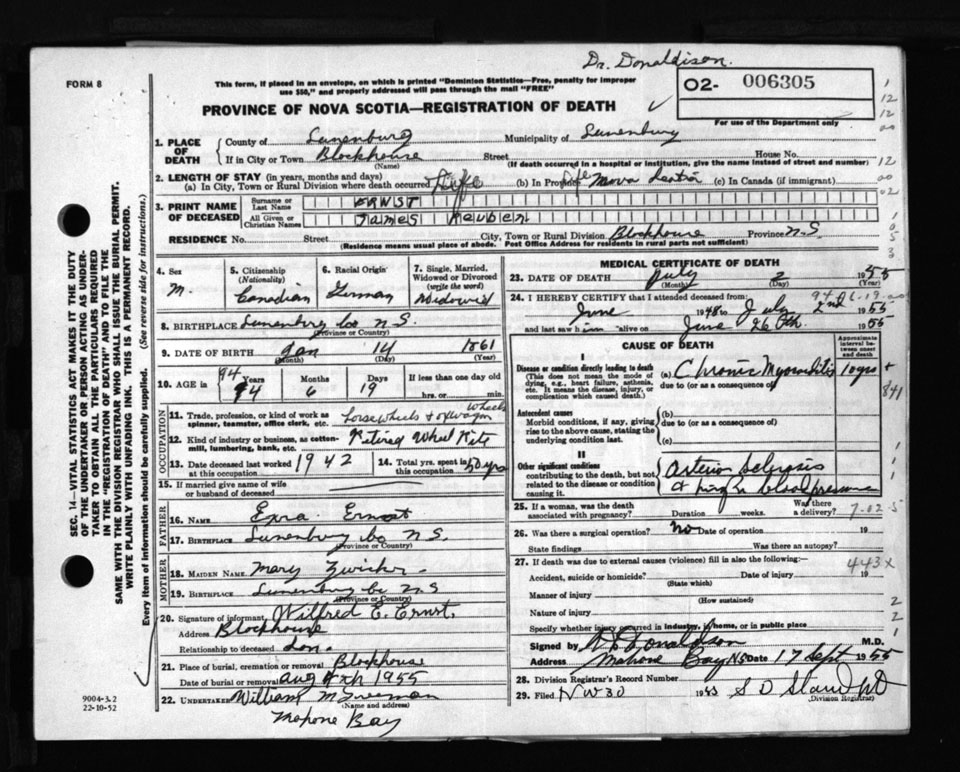 Dr. Donaldison.
FORM 8
This form, if placed in an envelope, on which is printed "Dominion Statistics—Free, penalty for improper use $50," and properly addressed will pass through the mail "FREE"
02- 006305
For use of the Department only
PROVINCE OF NOVA SCOTIA—REGISTRATION OF DEATH
1. PLACE OF DEATH
County of Lunenburg Municipality of Lunenburg
If in City or Town Blockhouse Street House No.
(Name) (If death occurred in a hospital or institution, give the name instead of street and number)
2. LENGTH OF STAY (in years, months and days)
(a) In City, Town or Rural Division where death occurred Life (b) In Province Life Nova Scotia (c) In Canada (if immigrant)
3. PRINT NAME OF DECEASED
Surname or Last Name ERNST
All Given or Christian Names James Reuben
RESIDENCE No. Street City, Town or Rural Division Blockhouse Province N.S
(Residence means usual place of abode. Post Office Address for residents in rural parts not sufficient)
4. Sex M.
5. Citizenship (Nationality) Canadian
6. Racial Origin German
7. Single, Married, Widowed or Divorced (write the word) Widowed
8. BIRTHPLACE Lunenburg Co N.S.
(Province or Country)
9. DATE OF BIRTH Jan 14 1861
(Month) (Day) (Year)
10. AGE in 94 Years Months Days If less than one day old
94 6 19 hrs. or min.
OCCUPATION
11. Trade, profession, or kind of work as spinner, teamster, office clerk, etc. Horse wheels & ox wagon wheels
12. Kind of industry or business, as cotton-mill, lumbering, bank, etc. Retired Wheel Rite
13. Date deceased last worked at this occupation 1942
14. Total yrs. spent in this occupation 50 yrs
15. If married give name of wife or husband of deceased
FATHER
16. NAME Ezra Ernst
17. BIRTHPLACE Lunenburg Co N.S.
(Province or Country)
MOTHER
18. MAIDEN NAME Mary Zwicker
19. BIRTHPLACE Lunenburg Co N.S
(Province or Country)
20. Signature of informant Wilfred E. Ernst.
Address Blockhouse
Relationship to deceased Son.
21. Place of burial, cremation or removal Blockhouse
Date of burial or removal Aug 4th 1955
22. UNDERTAKER William M
(Name and address)
Mahone Bay
9004-3.2
22-10-52
MEDICAL CERTIFICATE OF DEATH
23. DATE OF DEATH July 2 1955
(Month) (Day)
24. I HEREBY CERTIFY that I attended deceased from:
June 1948 to July 2nd 1955
and last saw him alive on June 26th. 1955
CAUSE OF DEATH
Approximate interval between onset and death
I
Disease or condition directly leading to death
(This does not mean the mode of dying, e.g., heart failure, asthenia, etc. It means the disease, injury, or complication which caused death.)
(a) Chronic Myocarditis 10 yrs +
due to (or as a consequence of)
841
Antecedent causes
Morbid conditions, if any, giving rise to the above cause, stating the underlying condition last.
(b)
due to (or as a consequence of)
(c)
II
Other significant conditions contributing to the death, but not related to the disease or condition causing it.
& high blood pressure
25. If a woman, was the death associated with pregnancy? Duration weeks. Was there a delivery?
26. Was there a surgical operation? No Date of operation 19
State findings Was there an autopsy?
27. If death was due to external causes (violence) fill in also the following:—
443 x
Accident, suicide or homicide? Date of injury 19
(State which)
Manner of injury
(How sustained)
Nature of injury
Specify whether injury occurred in industry, in home, or in public place
Signed by Donaldson M.D.
Address Mahone Bay NS Date 17 Sept 1955
28. Division Registrar's Record Number
29. Filed
(Division Registrar)
SEC. 14—VITAL STATISTICS ACT MAKES IT THE DUTY OF THE UNDERTAKER OR PERSON ACTING AS UNDERTAKER TO OBTAIN ALL THE PARTICULARS REQUIRED IN THE "REGISTRATION OF DEATH" AND TO FILE THE SAME WITH THE DIVISION REGISTRAR WHO SHALL ISSUE THE BURIAL PERMIT.
WRITE PLAINLY WITH UNFADING INK. THIS IS A PERMANENT RECORD.
Every item of information should be carefully supplied. (See reverse side for instructions.)